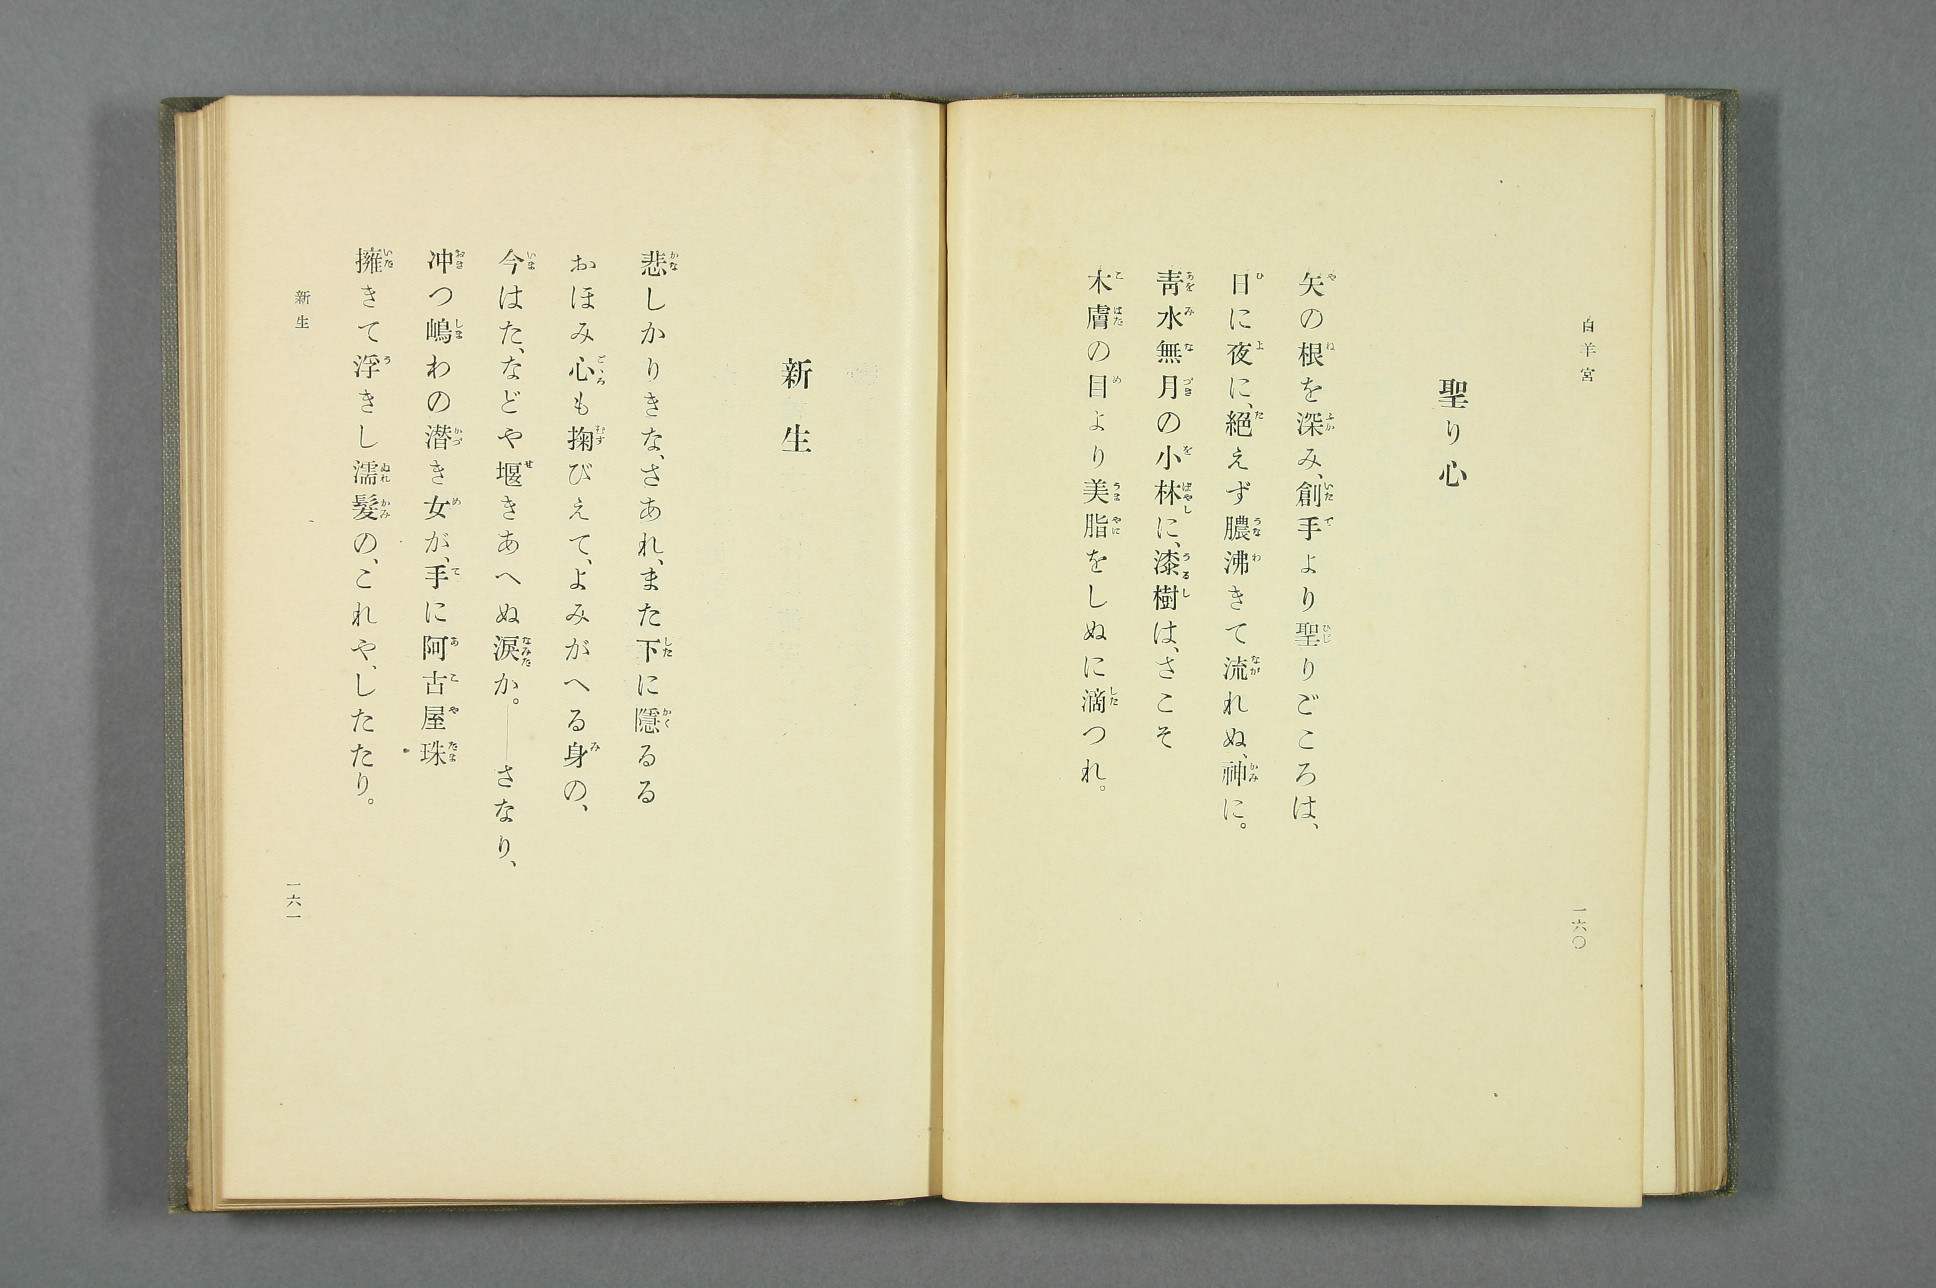 白羊宮
聖り心
矢の根を深み、創手より聖りごころは、
日に夜に、絕えず膿沸きて流れぬ、神に。
靑水無月の小林に、漆樹は、さこそ
木膚の目より美脂をしぬに滴つれ。
一六〇
新生
悲しかりきな、さあれ、また下に隱るる
おほみ心も掬びえて、よみがへる身の、
今はた、などや堰きあへぬ淚か。――さなり、
冲つ嶋わの潜き女が、手に阿古屋珠
擁きて浮きし濡髮の、これや、したたり。
新生
一六一